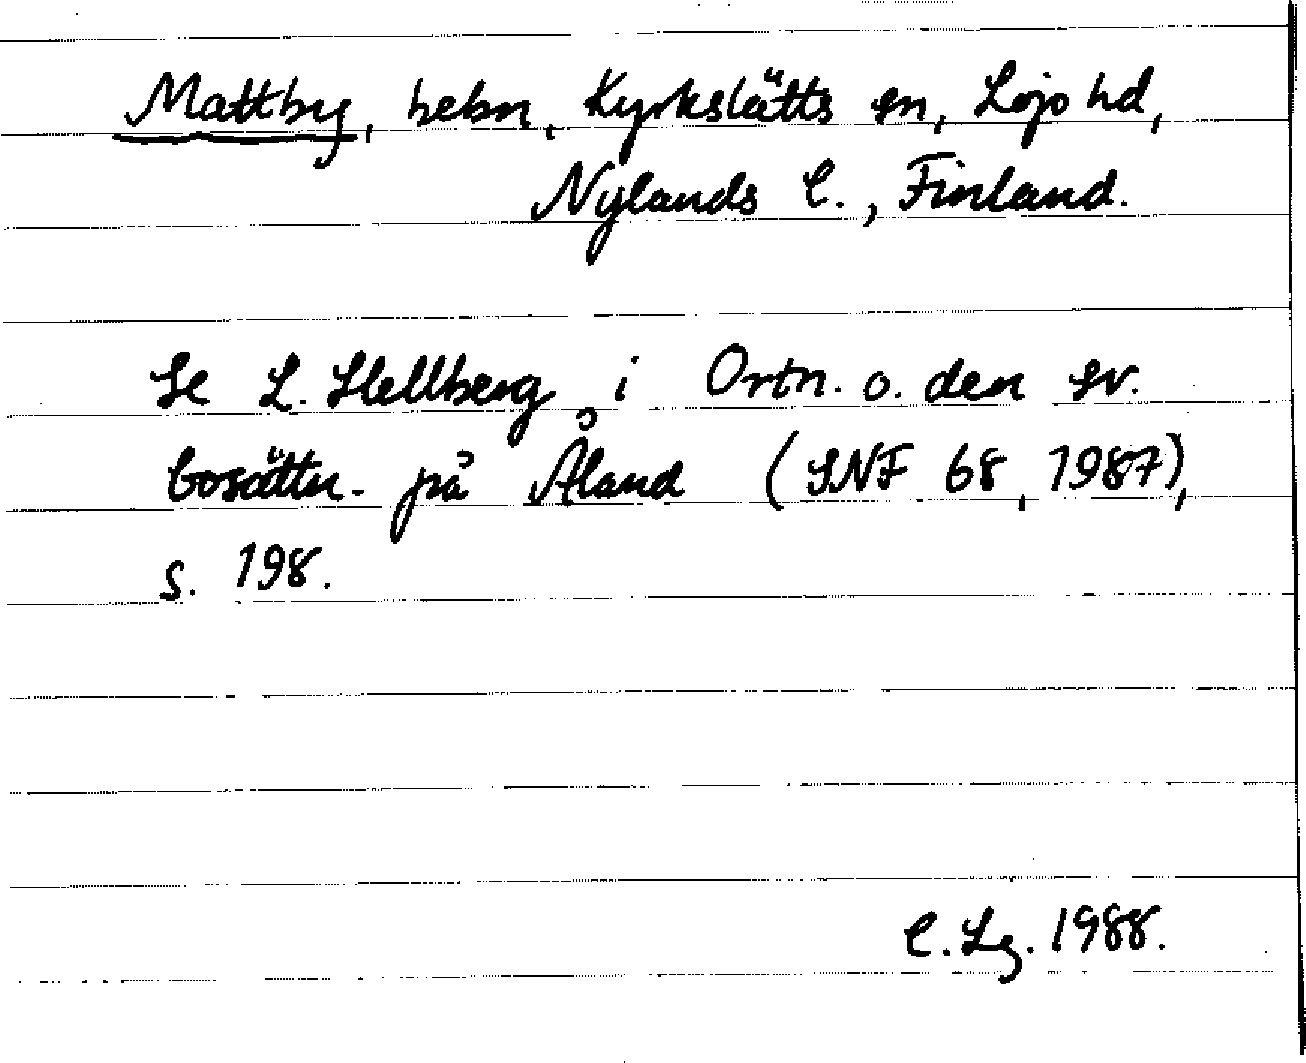 Mattby, bebn, Kyrkslätts sn, Lojo hd,
Nylands l., Finland.
Se L. Hellberg i Ortn. o. den sv.
bosättn. på Åland (SNF 68, 1987),
s. 198.
C. Lg. 1988.